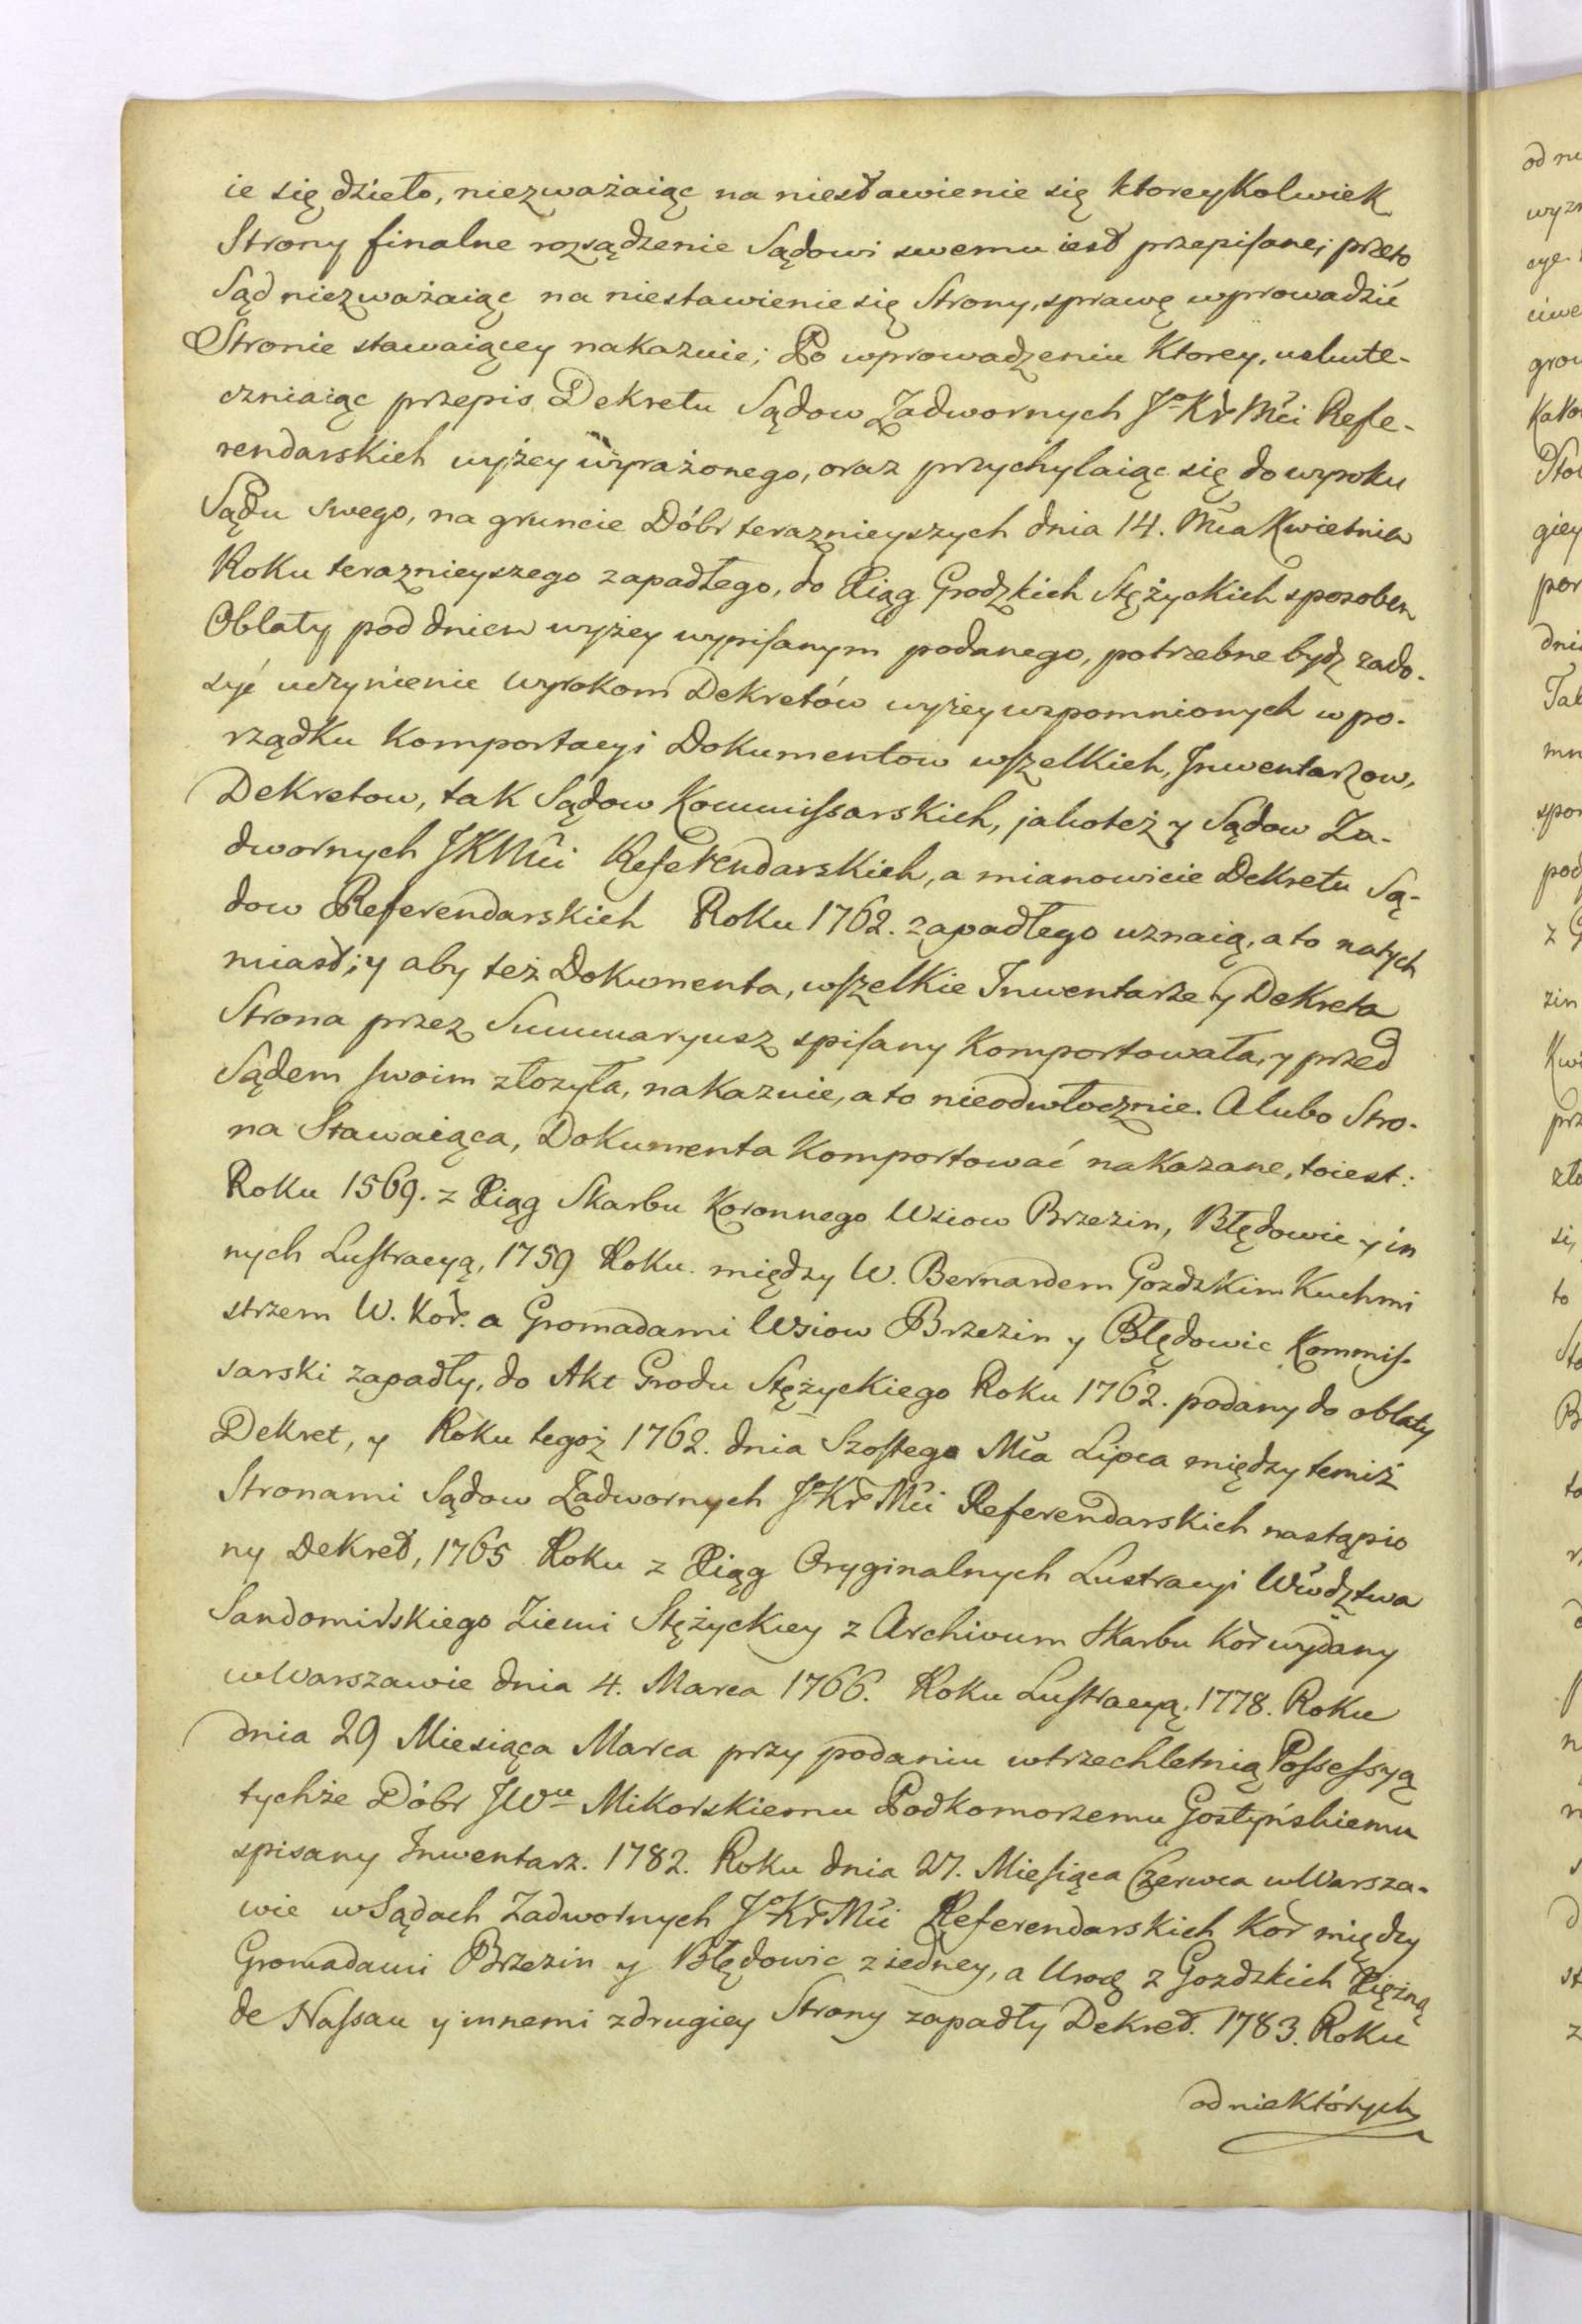 ie się dzieło, niezważaiąc na niestawienie się ktoreykolwiek
Strony finalne rozsądzenie Sądowi swemu iest przepisane; przeto
Sąd niezważaiąc na niestawienie się Strony, sprawę wprowadzić
Stronie stawaiącey nakazuie; Po wprowadzeniu Ktorey, uskute-
czniaiąc przepis Dekretu Sądow Zadwornych JoKr Mći Refe-
rendarskich wyżey wyrażonego, oraz przychylaiąc się do wyroku
Sądu swego, na gruncie Dóbr teraznieyszych dnia 14. Mća Kwietnia
Roku teraznieyszego zapadłego, do Xiąg Grodzkich Stężyckich sposobem
Oblaty pod dniem wyżey wypisanym podanego, potrzebne bydz zado-
syć uczynienie wyrokom Dekretów wyżey wzpomnionych w po-
rządku Komportacyi Dokumentow wszelkich, Inwentarzow,
Dekretow, tak Sądow Kommissarskich, jakoteż y Sądow Za-
dwornych JKMći Referendarskich, a mianowicie Dekretu Są-
dow Referendarskich Roku 1762. zapadłego uznaią, a to natych
miast; y aby też Dokumenta, wszelkie Inwentarze y Dekreta
Strona przez Summaryusz spisany Komportowała, y przed
Sądem swoim złozyła, nakazuie, a to nieodwłocznie. Alubo Stro-
na Stawaiąca, Dokumenta Komportować nakazane, toiest:
Roku 1569. z Xiąg Skarbu Koronnego Wsiow Brzezin, Błędowic y in
nych Lustracyą, 1759 Roku. między W. Bernardem Gozdzkim Kuchmi
strzem W. Kor. a Gromadami Wsiow Brzezin y Błędowic Kommis-
sarski zapadły, do Akt Grodu Stężyckiego Roku 1762. podany do oblaty
Dekret, y Roku tegoż 1762. dnia Szostego Mća Lipca między temiż
Stronami Sądow Zadwornych JoKr Mći Referendarskich nastąpio
ny Dekret, 1765 Roku z Xiąg Oryginalnych Lustracyi Wwdztwa
Sandomirskiego Ziemi Stężyckiey z Archivum Skarbu Kor wydany
w Warszawie dnia 4. Marca 1766. Roku Lustracyą. 1778. Roku
dnia 29 Miesiąca Marca przy podaniu wtrzechletnią Possessyą
tychże Dóbr JWu Mikorskiemu Podkomorzemu Gostyńskiemu
spisany Inwentarz. 1782. Roku dnia 27. Miesiąca Czerwca w Warsza-
wie w Sądach Zadwornych JoKr Mći Referendarskich Kor między
Gromadami Brzezin y Błędowic z iedney, a Urod z Gozdzkich Xiężną
de Nassau y innemi z drugiey Strony zapadły Dekret. 1783. Roku
od niektórych